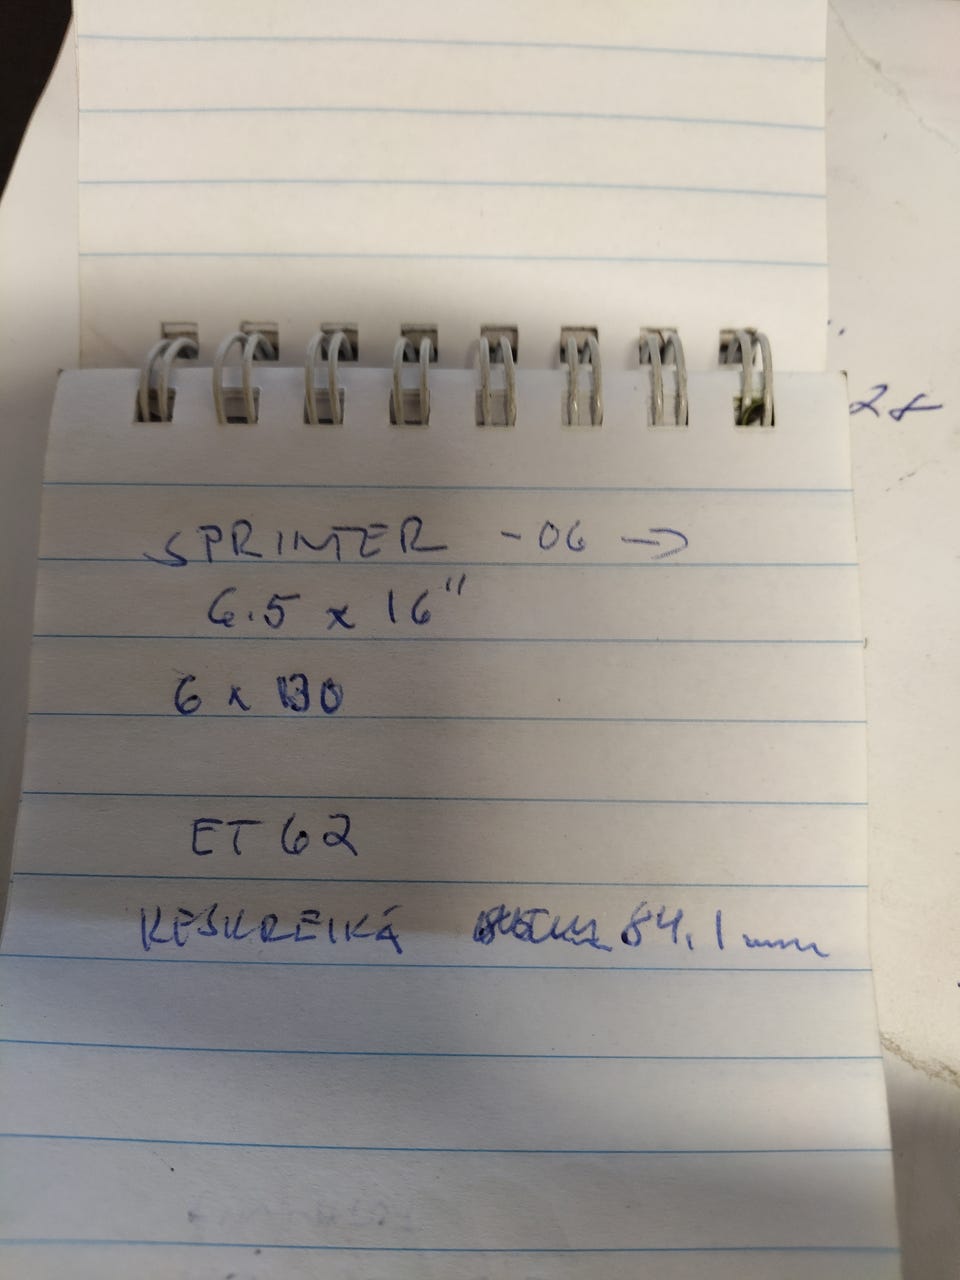 SPRINTER -06 →
6.5 x 16"
6 x 130
ET 62
KESKREIKÄ 84.1 mm